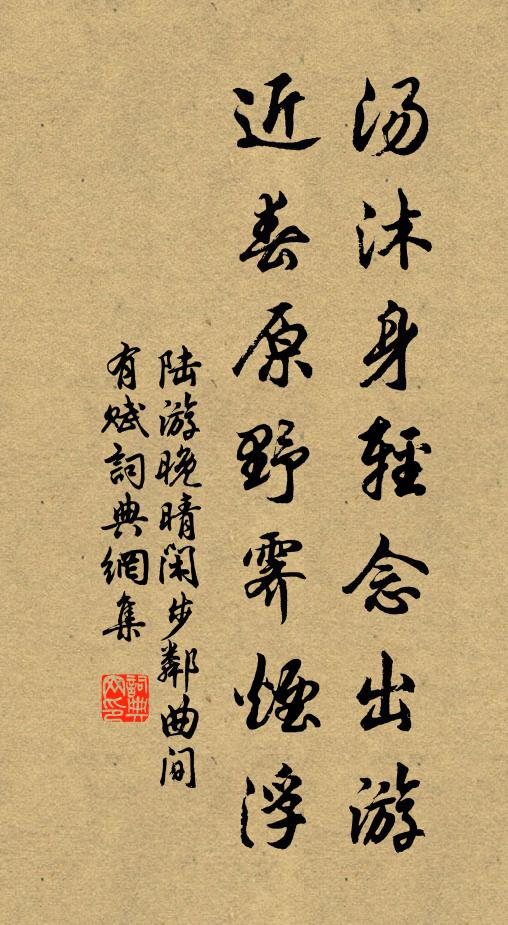 汤沐身輕念出游
近春原野霽煙浮
陆游晚晴闲步鄰曲间
有赋詞典網集